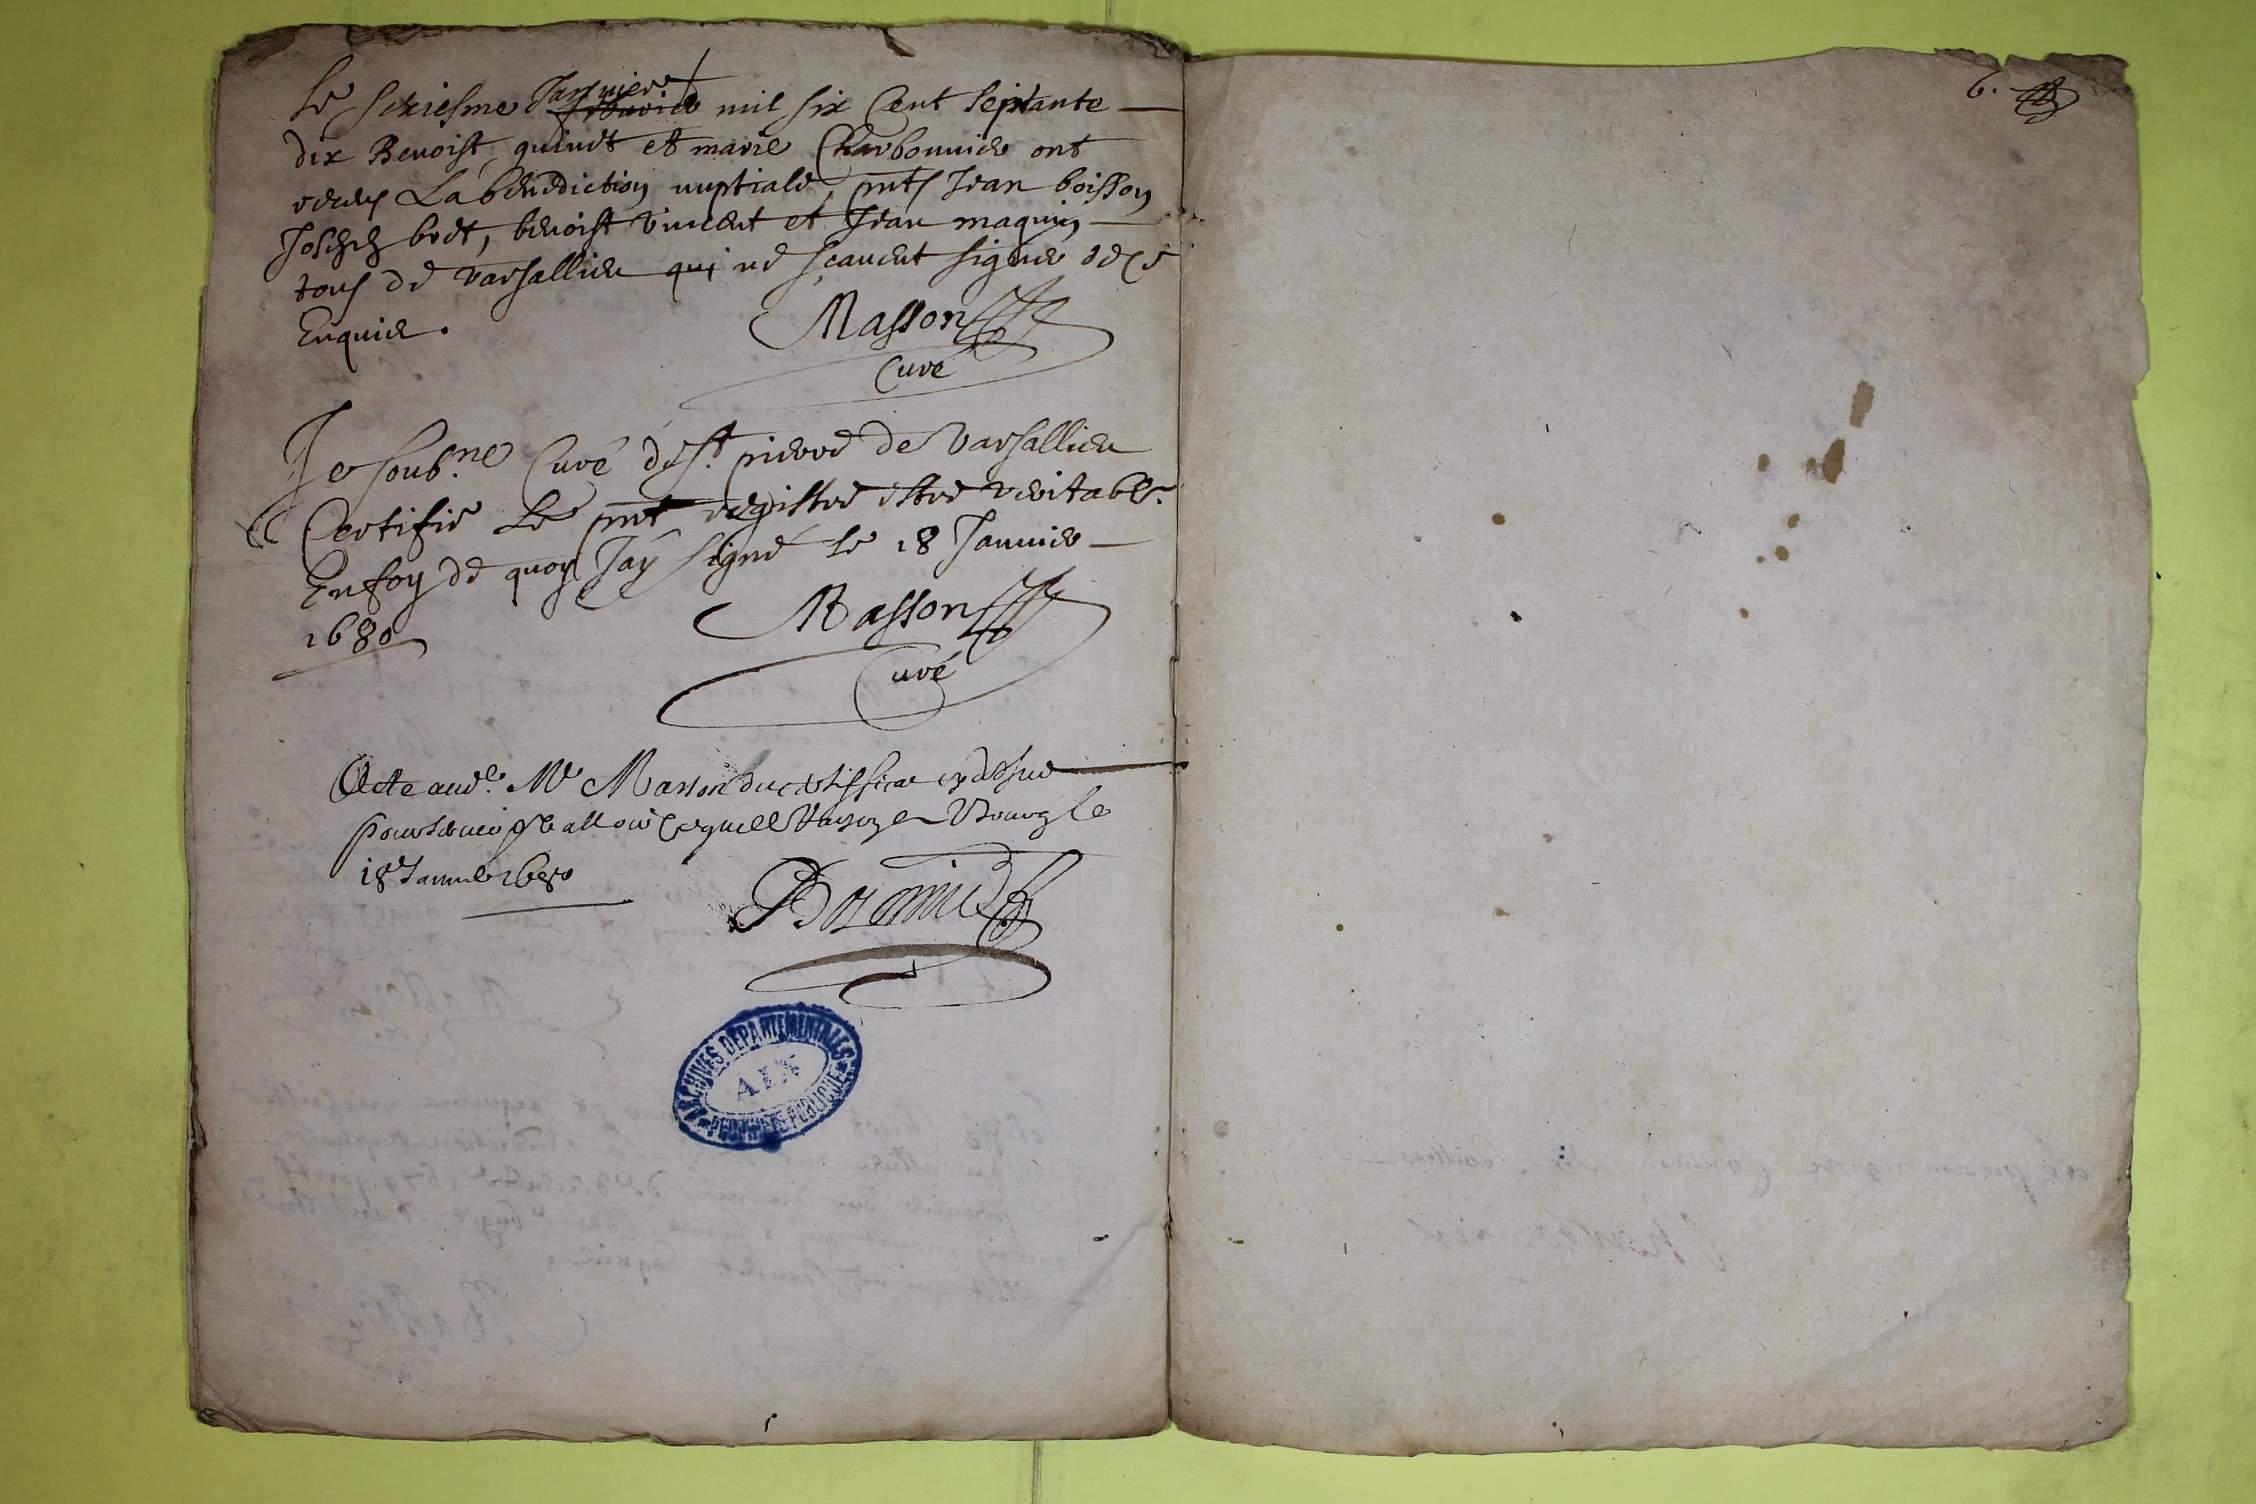 Le sixiesme Janvier mil six Cent Septante
dix Benoist quinet et marie Charbonnier ont
receus La benediction nuptiale, pnts Jean boisson
Joseph bret, benoist vincent et Jean maquin
tous de varsallieu qui ne sçavent signer de ce
Enquier.
Masson
Curé
Je soub.ne Curé de St. pierre de varsallieu
Certifie Le pnt registre estre veritable.
En foy de quoy Jay signé le 18 Janvier
1680
Masson
Curé
Acte aud. Mr Masson du certifficat cy dessus
pour servir et valloir ce que de Raison Bourg le
18e Janvier 1680
ARCHIVES DÉPARTEMENTALES
AIN
PROPRIÉTÉ PUBLIQUE
6.